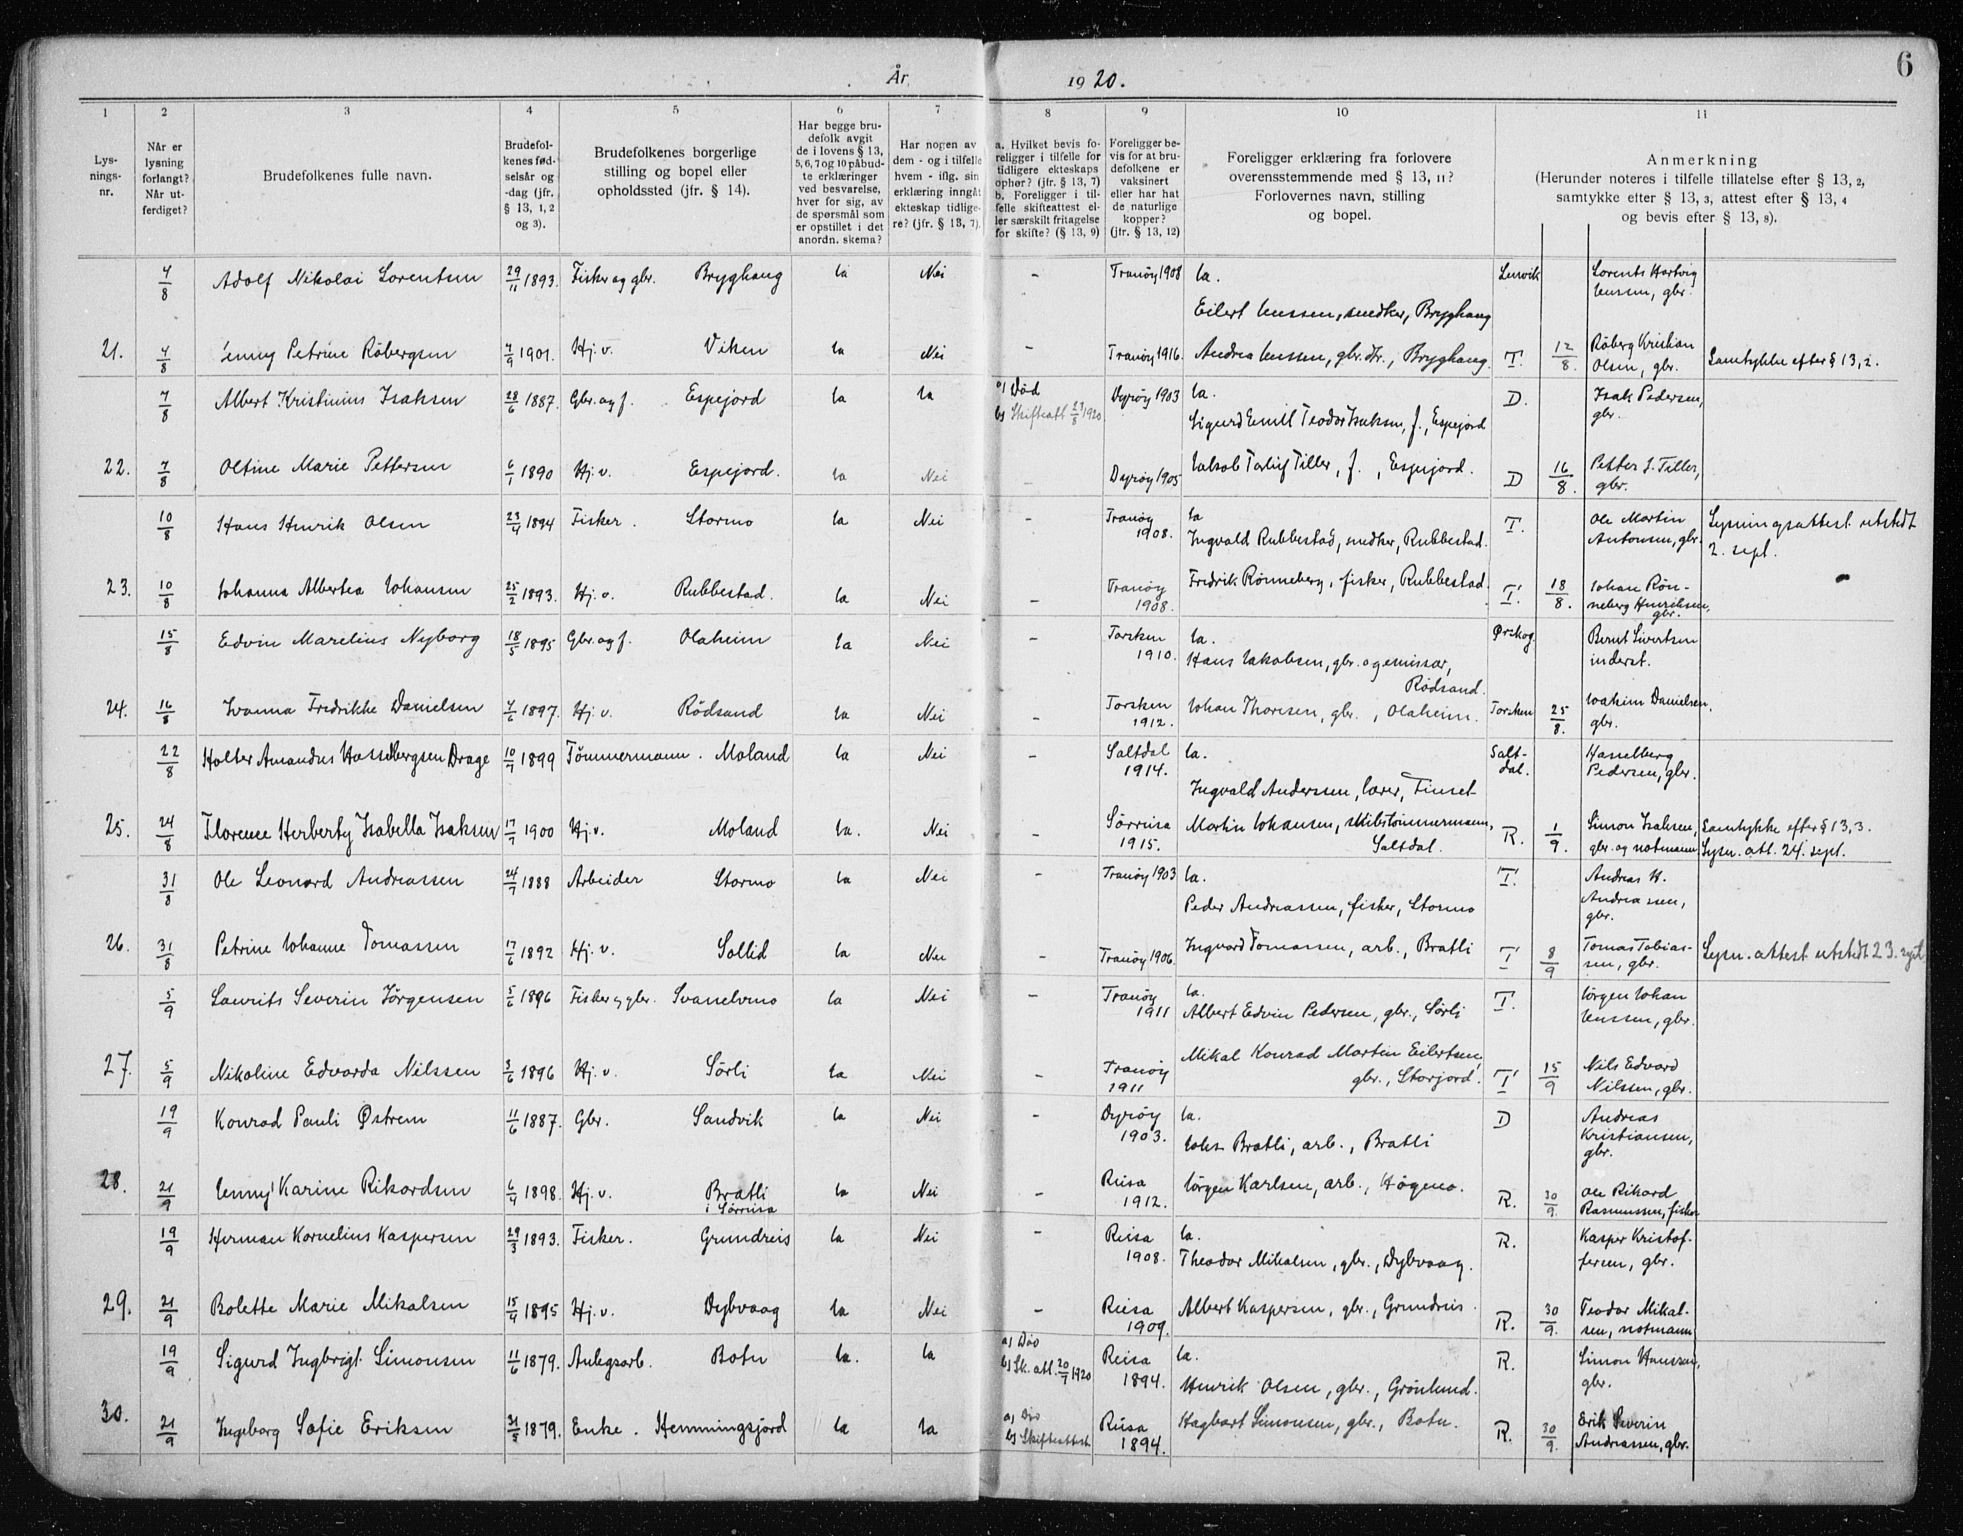 År
1920.
6
1 2 3 4 5 6 7 8 9 10 11
Lys-
nings-
nr.
Når er
lysning
forlangt?
Når ut-
ferdiget?
Brudefolkenes fulle navn.
Brudefol-
kenes fød-
selsår og
-dag (jfr.
§ 13, 1, 2
og 3).
Brudefolkenes borgerlige
stilling og bopel eller
opholdssted (jfr. § 14).
Har begge bru-
defolk avgit
de i lovens § 13,
5, 6, 7 og 10 påbud-
te erklæringer
ved besvarelse,
hver for sig, av
de spørsmål som
er opstillet i det
anordn. skema?
Har nogen av
dem - og i tilfelle
hvem - iflg. sin
erklæring inngåt
ekteskap tidlige-
re? (jfr. § 13, 7).
a. Hvilket bevis fo-
religger i tilfelle for
tidligere ekteskaps
ophør? (jfr. § 13, 7)
b. Foreligger i til-
felle skifteattest el-
ler særskilt fritagelse
for skifte? (§ 13, 9)
Foreligger be-
vis for at bru-
defolkene er
vaksinert
eller har hat
de naturlige
kopper?
(jfr. § 13, 12)
Foreligger erklæring fra forlovere
overensstemmende med § 13, 11?
Forlovernes navn, stilling
og bopel.
Anmerkning
(Herunder noteres i tilfelle tillatelse efter § 13, 2,
samtykke efter § 13, 3, attest efter § 13, 4
og bevis efter § 13, 8).
4/8 Adolf Nikolai Lorentsen 29/11 1893. Fisker og gbr. Bryghaug Ja Nei - Tranøy 1908 Ja. Lenvik Lorents Hartvig
Eilert Jenssen, snedker, Bryghaug Jenssen, gbr.
21. 4/8 Jenny Petrine Röbergsen 4/9 1901. Hj. v. Viken Ja Nei - Tranöy 1916. Andrea Jenssen, gbr. , Bryghaug. T. 12/8. Röberg Kristian Samtykke efter § 13, 2.
Olsen, gbr.
7/8 Albert Kristinius Isaksen 28/6 1887. Gbr. og f. Espejord Ja Ja a) Död Dyröy 1903 Ja. D. Isak Pedersen,
b) Skifteatt. 23/8 1920. Sigurd Emil Teodor Isaksen, f., Espejord gbr.
22. 7/8 Oltine Marie Pettersen 6/1 1890 Hj. v. Espejord. Ja Nei - Dyröy 1905 Jakob Torleif Tiller, f., Espejord. D 16/8. Petter J. Tiller,
gbr.
10/8 Hans Henrik Olsen 23/4 1894 Fisker. Stormo Ja Nei - Tranöy Ja T. Ole Martin Lysningsattest utstedt
1908. Ingvald Rubbestad, snedker, Rubbestad. Antonsen, gbr. 2. sept.
23. 10/8 Johanna Albertea Johansen 25/2 1893. Hj. v. Rubbestad. Ja Nei - Tranöy Fredrik Rønneberg, fisker, Rubbestad. T. 18/8. Johan Røn-
1908. neberg Henriksen,
gbr.
15/8 Edvin Marelius Nyborg 18/5 1895 Gbr. og f. Olaheim Ja Nei - Torsken Ja. Ørskog. Bernt Sivertsen
1910. Hans Jakobsen, gbr. og emissær, inderst.
Rödsand.
24. 16/8 Ivanna Fredrikke Danielsen 4/6 1897. Hj. v. Rödsand Ja Nei - Torsken Johan Thoresen, gbr., Olaheim. Torsken 25/8. Joakim Danielsen,
1912. gbr.
22/8 Holter Amandus Hasselbergsen Drage 10/7 1899 Tömmermann. Moland Ja Nei - Saltdal Ja. Salt- Hasselberg
1914. dal. Pedersen, gbr.
Ingvald Anderssen, lærer, Finset
25. 24/8 Florence Herberty Isabella Isaksen 17/7 1900 Hj. v. Moland Ja. Nei - Sörreisa Martin Johansen, skibstömmermann, R. 1/9. Simon Isaksen, Samtykke efter § 13, 3.
1915. Saltdal. gbr. og notmann Lysn. att. 24. sept.
31/8 Ole Leonard Andreassen 24/7 1888 Arbeider Stormo Ja Nei - Tranöy 1903 Ja. T. Andreas H.
Peder Andreassen, fisker, Stormo Andreassen,
gbr.
26. 31/8 Petrine Johanne Tomassen 17/6 1892 Hj. v. Sollid Ja Nei - Tranöy 1906. Ingvard Tomassen, arb., Bratli T 8/9 Tomas Tobias- Lysn. attest utstedt 23. sept
sen, gbr.
5/9 Laurits Severin Jörgensen 5/6 1896 Fisker og gbr. Svanelvmo Ja Nei - Tranöy Ja. T. Jörgen Johan
1911 Albert Edvin Pedersen, gbr., Sörli Jenssen, gbr.
27. 5/9 Nikoline Edvarda Nilssen 3/6 1896 Hj. v. Sörli Ja Nei - Tranöy Mikal Konrad Martin Eilertsen, T 15/9 Nils Edvard
1911 gbr., Storjord. Nilssen, gbr.
19/9 Konrad Pauli Østrem 11/6 1887. Gbr. Sandvik Ja Nei - Dyröy Ja. D Andreas
1903. Johs. Bratli, arb., Bratli Kristiansen,
gbr.
28. 21/9 Jenny Karine Rikardsen 6/4 1898. Hj. v. Bratli Ja Nei - Reisa Jörgen Karlsen, arb., Högmo. R. 30/9. Ole Rikard
i Sörreisa 1912. Rasmussen, fisker
19/9 Herman Kornelius Kaspersen 29/3 1893. Fisker. Grundreis Ja Nei - Reisa Ja. R. Kasper Kristof-
1908. Theodor Mikalsen, gbr., Dybvaag. fersen, gbr.
29. 21/9 Bolette Marie Mikalsen 15/4 1895 Hj. v. Dybvaag Ja Nei - Reisa Albert Kaspersen, gbr., Grundreis. R. 30/9. Teodor Mikal-
1909. sen, notmann
19/9 Sigurd Ingbrigt. Simonsen 11/6 1879. Anlegsarb. Botn Ja. Ja a) Död Reisa Ja. R. Simon Hanssen,
b) Sk. att. 20/7 1920 1894. Henrik Olsen, gbr., Grönlund. gbr.
30. 21/9 Ingeborg Sofie Eriksen 31/5 1879. Enke. Hemmingsjord Ja Ja a) Död Reisa Hagbart Simonsen, gbr., Botn. R. 30/9. Erik Severin
b) Skifteattest 1894. Andreassen, gbr.